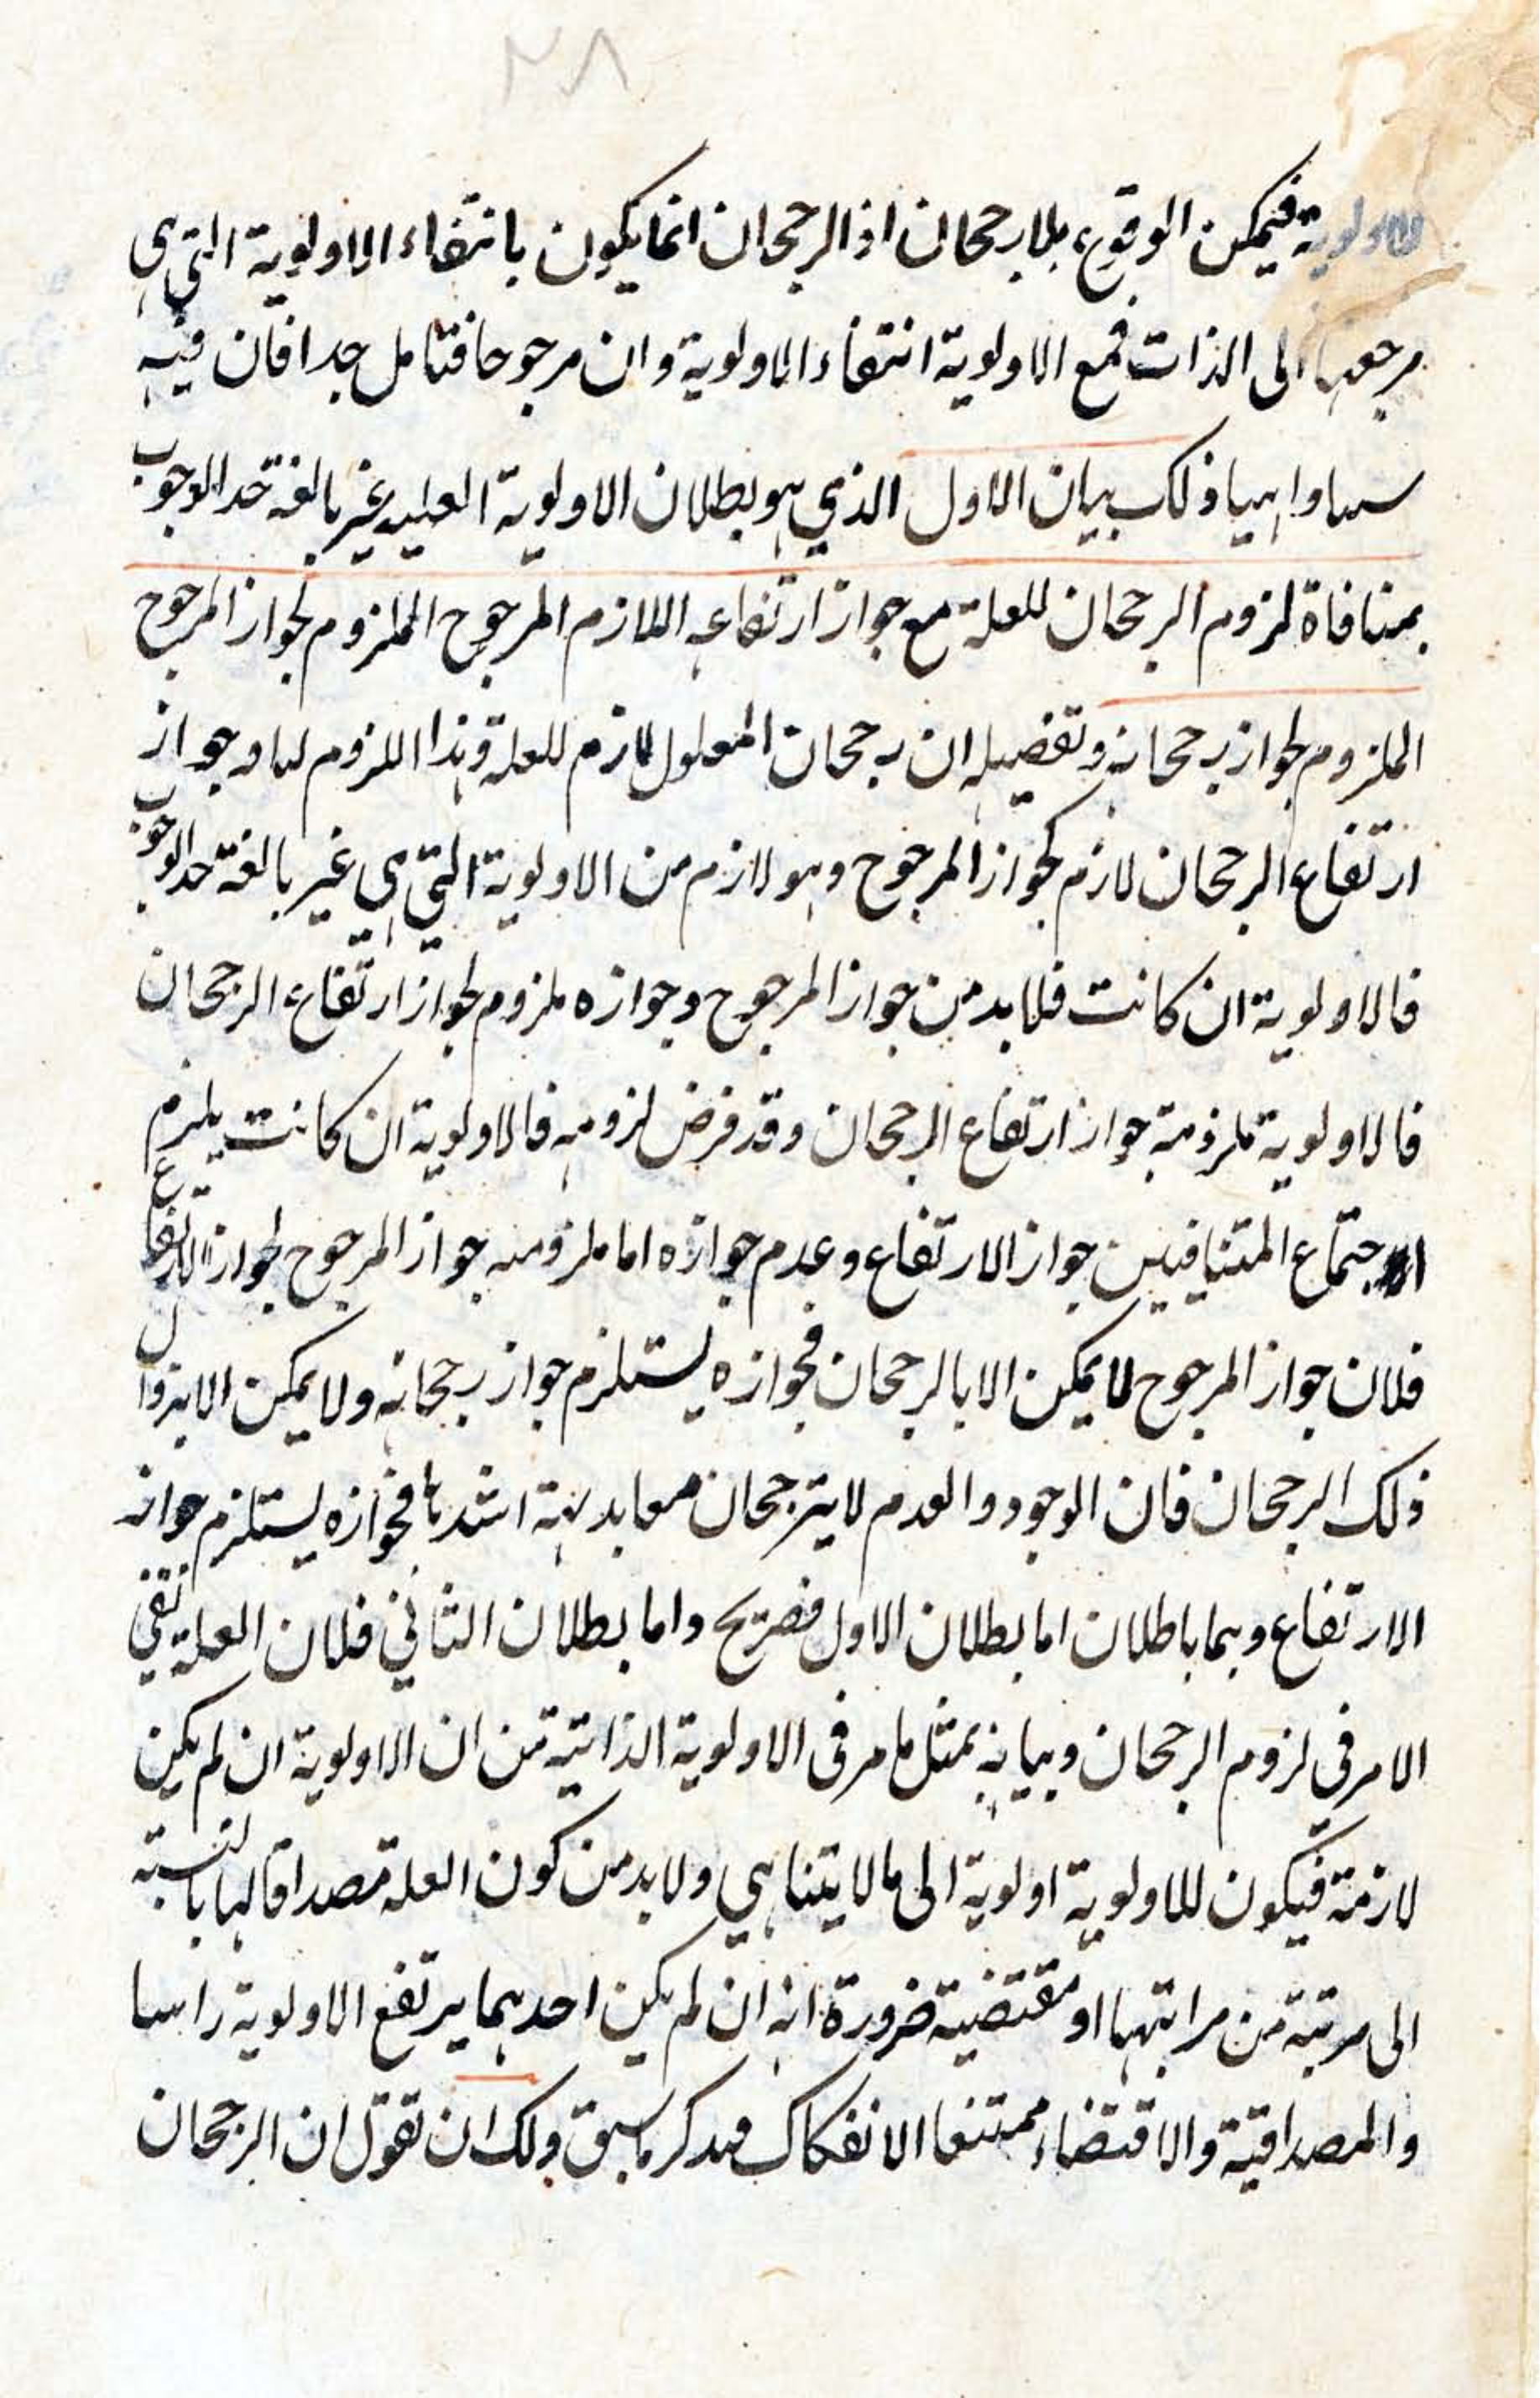 ٢٨
الاولوية فيمكن الوقوع بلا رجحان اذ الرجحان انما يكون بانتفاء الاولوية التي هي
مرجعها الى الذات فمع الاولوية انتفاء الاولوية وان مرجوحا فتامل جدا فان فيه
ولك بيان الاول الذي هو بطلان الاولوية العلية غير بالغة حد الوجوب
بمنافاة لزوم الرجحان للعلة مع جواز ارتفاعه اللازم المرجوح الملزوم لجواز المرجوح
الملزوم لجواز رجحانه وتفصيله ان رجحان المعلول لازم للعلة وهذا اللزوم وجواز
ارتفاع الرجحان لازم لجواز المرجوح وهو لازم من الاولوية التي هي غير بالغة حد الوجوب
فالاولوية ان كانت فلا بد من جواز المرجوح وجوازه ملزوم لجواز ارتفاع الرجحان
فالاولوية ملزومة جواز ارتفاع الرجحان وقد فرض لزومه فالاولوية ان كانت يلزم
اجتماع المتنافيين جواز الارتفاع وعدم جوازه اما ملزومية جواز المرجوح لجواز الارتفاع
فلان جواز المرجوح لا يمكن الا بالرجحان فجوازه يستلزم جواز رجحانه ولا يمكن الا بزوال
ذلك الرجحان فان الوجود والعدم لا يترجحان معا بديهة اشدها فجوازه يستلزم جواز
الارتفاع وهما باطلان اما بطلان الاول فصريح واما بطلان الثاني فلان العلة تقتضي
الامر في لزوم الرجحان وبيانه بمثل ما مر في الاولوية الذاتية من ان الاولوية ان لم يكن
لازمة فيكون للاولوية اولوية الى ما لا يتناهي ولا بد من كون العلة مصداقا لها بالنسبة
الى مرتبة من مراتبها او مقتضية ضرورة انه ان لم يكن احدهما يرتفع الاولوية راسا
والمصداقية والاقتضاء ممتنعا الانفكاك سبق ولك ان تقول ان الرجحان